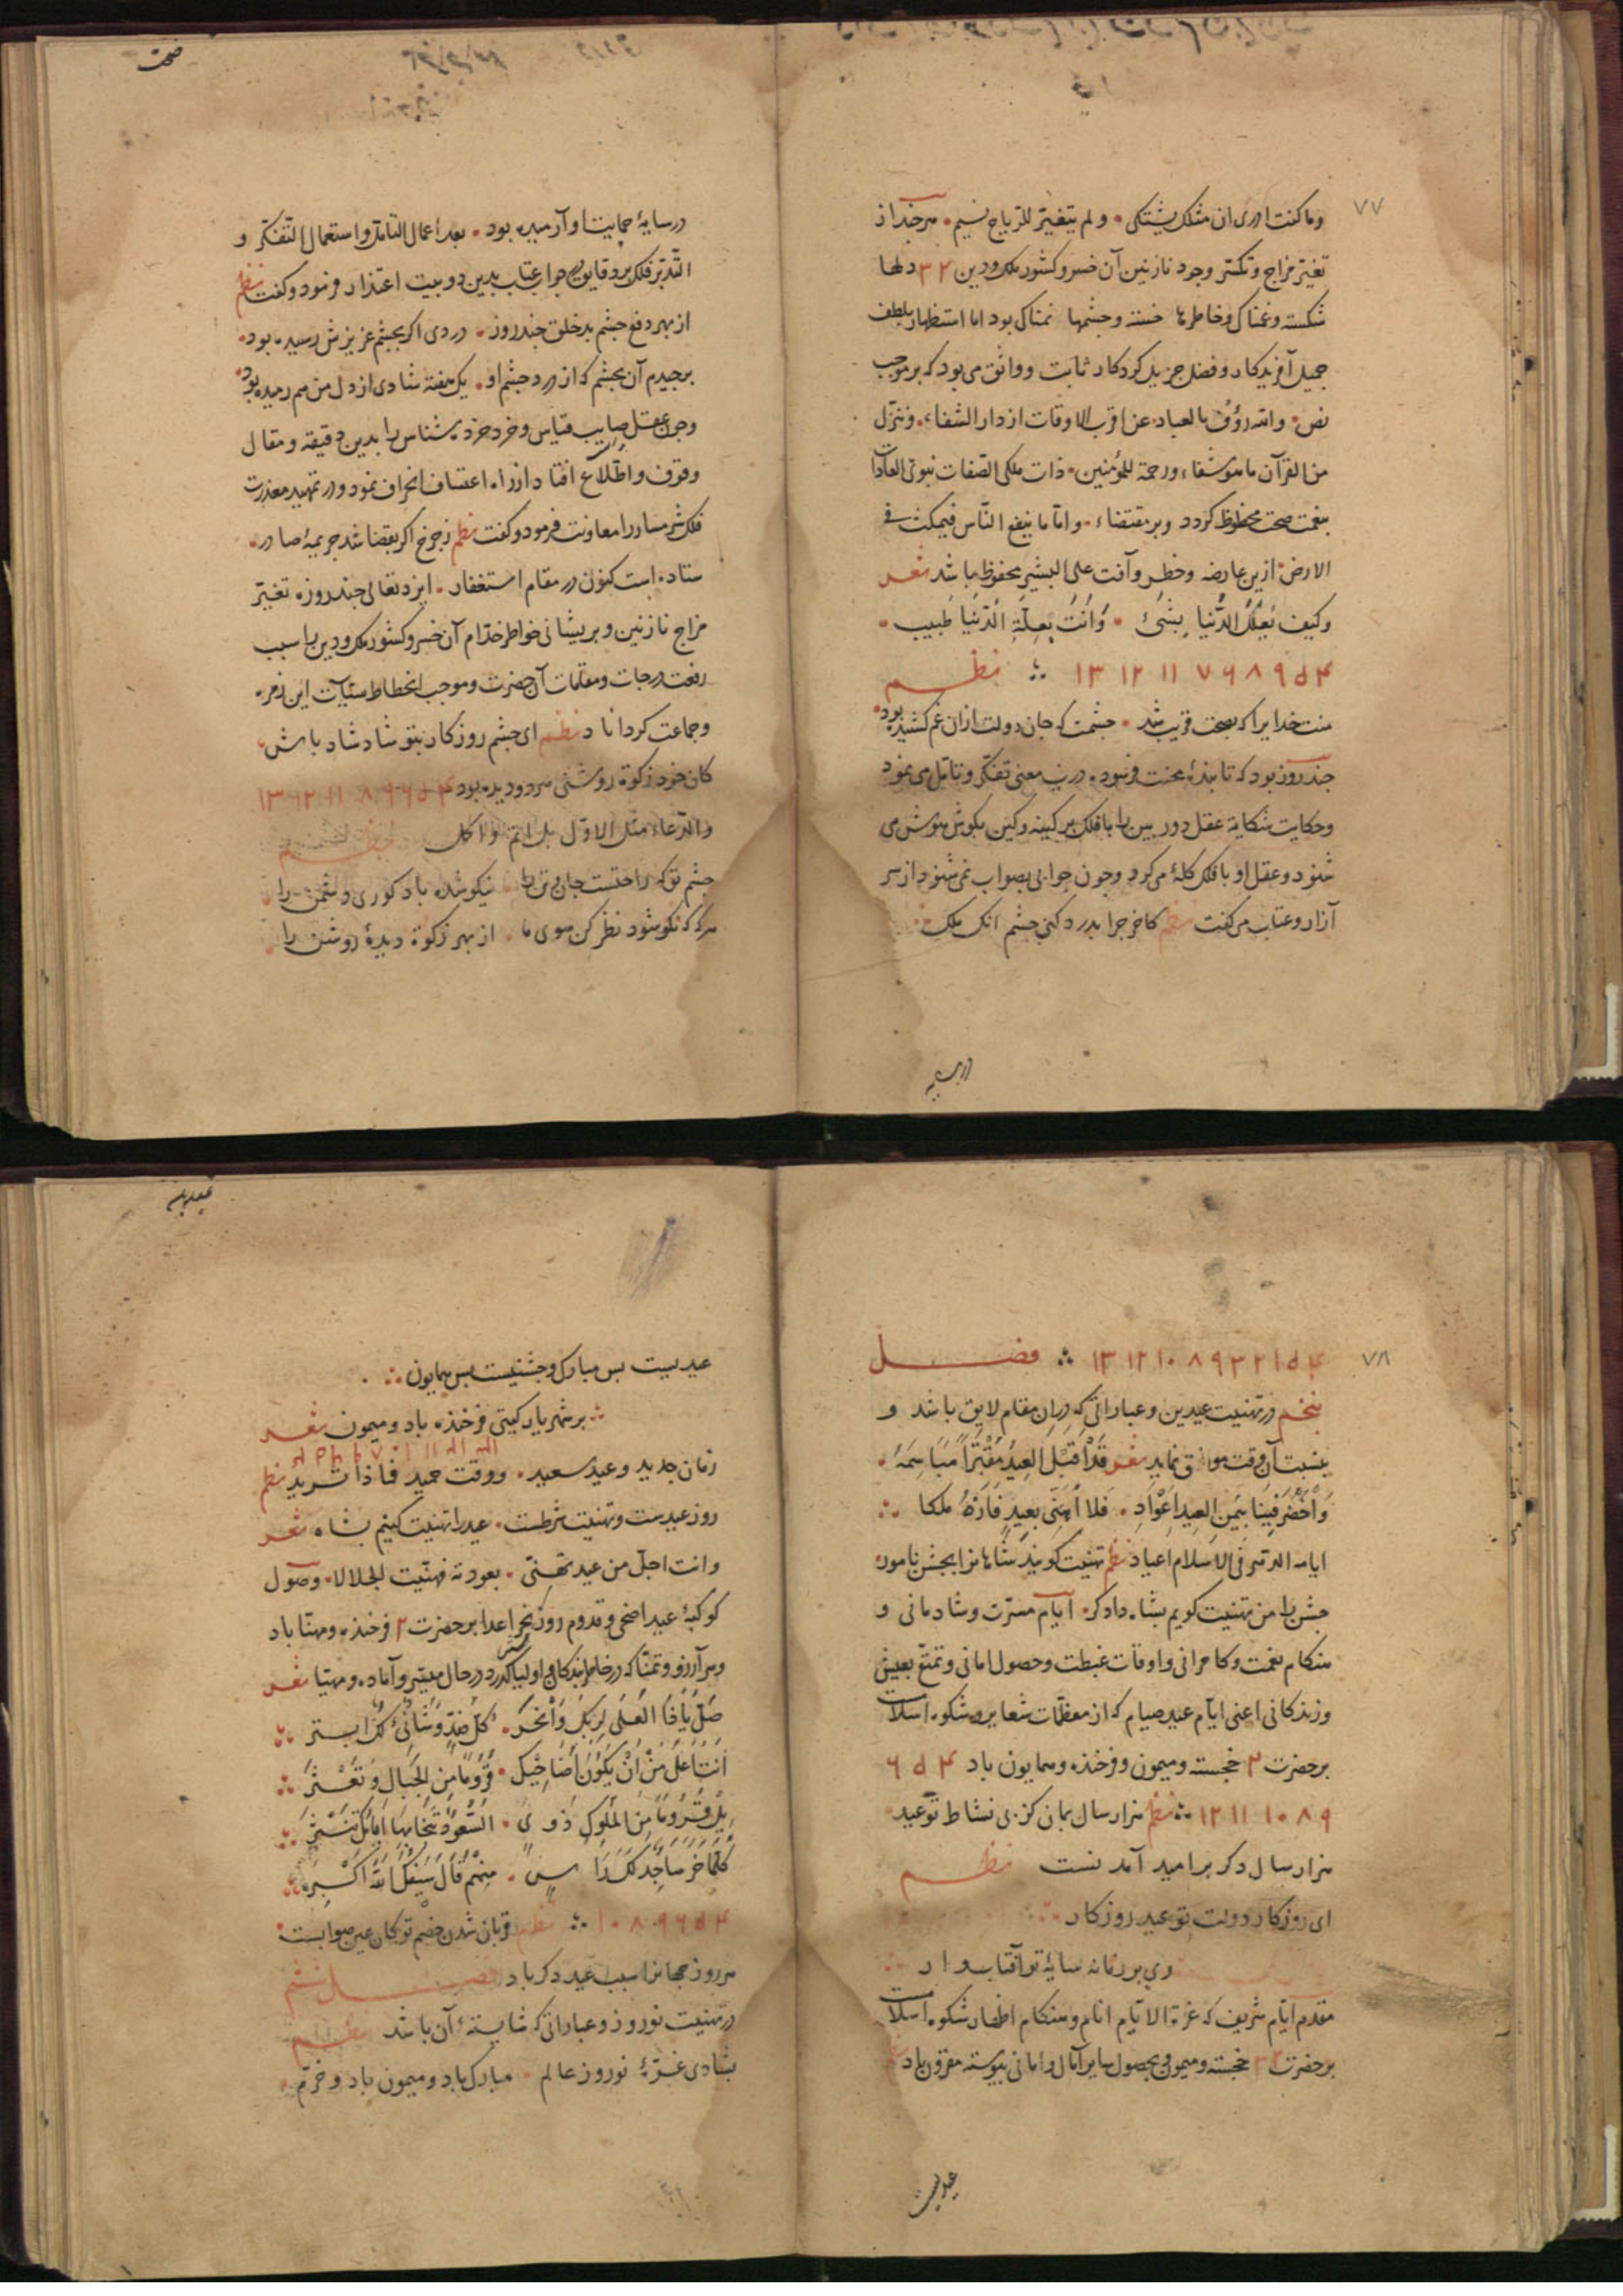 ۷۷
وما کنت ادری ان مثلک یشتکی • ولم یتغیر للریاح نسیم • هرچند از
تغیر مزاج و تکسر وجود نازنین آن خسرو کشور ملک و دین ۳۲ دلها
شکسته و غمناک و خاطرها خسته و چشمها نمناک بود اما استظهار بلطف
جمیل آفریدکار و فضل جزیل کردکار ثابت و واثق می بود که بر موجب
نص • والله رؤف بالعباد • عن اقرب الاوقات از دار الشفاء • وننزل
من القرآن ما هو شفاء ورحمة للمؤمنین • ذات ملکی الصفات نبوی العادات
بنعمت صحت محظوظ کردد و بر مقتضاء • واما ما ینفع الناس فیمکث فی
الارض • ازین عارضه وخطر وآفت علی البشیر محفوظ باشد شعر
وکیف تعلک الدنیا بشئ • وانت بعلة الدنیا طبیب •
۴ ۵ ۹ ۸ ۶ ۷ ۱۱ ۱۲ ۱۳ نظم
منت خدایرا که بصحت قریب شد • چشمت که جان دولت ازان غم کشیده بود •
چند روز بود که تا بنده محنت فرسوده درین معنی تفکر و تامل می نمود
و حکایت شکایة عقل دور بین را با فلک پر کینه و کین بکوش هوش می
شنود و عقل او با فلک کله می کرد و چون جوابی بصواب نمی شنود از سر
آزار و عتاب می کفت نظم کاخر چرا بدرد کنی چشم انک ملک
در سایه
صحت
در سایهٔ حمایت او آرمیده بود • بعد اعمال التامل و استعمال التفکر و
التدبر فلک بر دقایق جواب عتاب بدین دو بیت اعتذار فرمود و کفت نظم
از بهر دفع چشم بد خلق چند روز • دردی اکر بچشم عزیزش رسیده بود •
برچیدم آن بچشم که از درد چشم او • یک هفته شادی از دل من هم رمیده بود •
و چون عقل صایب قیاس و خرد خرده شناس را بدین دقیقه و مقال
وقوف و اطلاع افتاد از راه اعتساف انحراف نمود و در تمهید معذرت
فلک شرمسار را معاونت فرمود و کفت نظم ز چرخ اکر بقضا شد جریمهٔ صادر •
ستاده است کنون در مقام استغفار • ایزد تعالی چند روزه تغیر
مزاج نازنین و پریشانی خواطر خدام آن خسرو کشور ملک و دین را سبب
رفعت درجات و مقامات آن حضرت و موجب انحطاط سیئات این زمره
و جماعت کرداناد نظم ای چشم روزکار بتو شاد شاد باش
کان خود زکوة روشنی هر دو دیده بود ۴ ۵ ۶ ۹ ۸ ۱۱ ۱۲ ۱۳
والدعاء مثل الاول بل اتم و اکمل نظم
چشم تو که راحتست جان و تن را • نیکو شده باد کوری دشمن را
هرکه که نکو شود نظر کن سوی ما • از بهر زکوة دیدهٔ روشن را •
۷۸
۴ ۵ ۱ ۲ ۳ ۹ ۸ ۱۰ ۱۲ ۱۳ فصل
پنجم در تهنیت عیدین و عباراتی که دران مقام لایق باشد و
بنسبت آن وقت موافق نماید شعر قد اقبل العید مفترا مباسمه •
واخضر فینا بیمن العید اعواد • فلا اهنی بعید فارة ملکا
ایامه الدهر فی الاسلام اعیاد نظم تهنیت کویند شاهانرا بجشن نامور
جشن را من تهنیت کویم بشاه دادکر • ایام مسرت و شادمانی و
هنکام نعمت و کامرانی و اوقات غبطت و حصول امانی و تمتع بعیش
و زندکانی اعنی ایام عید صیام که از معظمات شعایر و شکوه اسلامست
بر حضرت ۲ خجسته و میمون و فرخنده و همایون باد ۴ ۵ ۶
۹ ۸ ۱۰ ۱۱ ۱۲ نظم هزار سال بمان کز پی نشاط تو عید
هزار سال دکر بر امید آمدنست نظم
ای روزکار دولت تو عید روزکار
وی بر زمانه سایهٔ تو آفتاب وار
مقدم ایام شریف که غرة الایام انام و هنکام اظهار شکوه اسلامست
بر حضرت ۲ خجسته و میمون و بحصول سایر آمال و امانی پیوسته مقرون باد
عیدیست
عیدیه
عیدیست بس مبارک و جشنیست بس همایون
بر شهریار کیتی فرخنده باد و میمون شعر
زمان جدید وعید سعید • ووقت حمید فماذا ترید نظم
روز عیدست و تهنیت شرطست • عید را تهنیت کنیم بشاه شعر
وانت اجل من عید تهنی • بعودته فهنیت الجلالا • وصول
کوکبهٔ عید اضحی و قدوم روز نحر اعدا بر حضرت ۲ فرخنده و مهنا باد
و هر آرزو و تمنا که در خاطر بندکان و اولیا کذرد در حال میسر و آماده و مهیا شعر
صل یاذا العلی لربک وانحر • کل ضد وشانئ لک ابتر
انت اعلی من ان یکون اضاحیک • قروما من الجمال وتعثر
بل قروما من الملوک ذوی • السعود تیجانها امامک تنثر
کلما خر ساجدا لک راس • منهم قال سیفک الله اکبر
۴ ۵ ۶ ۹ ۸ ۱۰ نظم قربان شدن خصم تو کان عین صوابست
هر روز جهانرا سبب عید دکر باد فصل ششم
در تهنیت نوروز و عباراتی که شایستهٔ آن باشد نظم
بشادی غرهٔ نوروز عالم • مبارک باد و میمون باد و خرم •